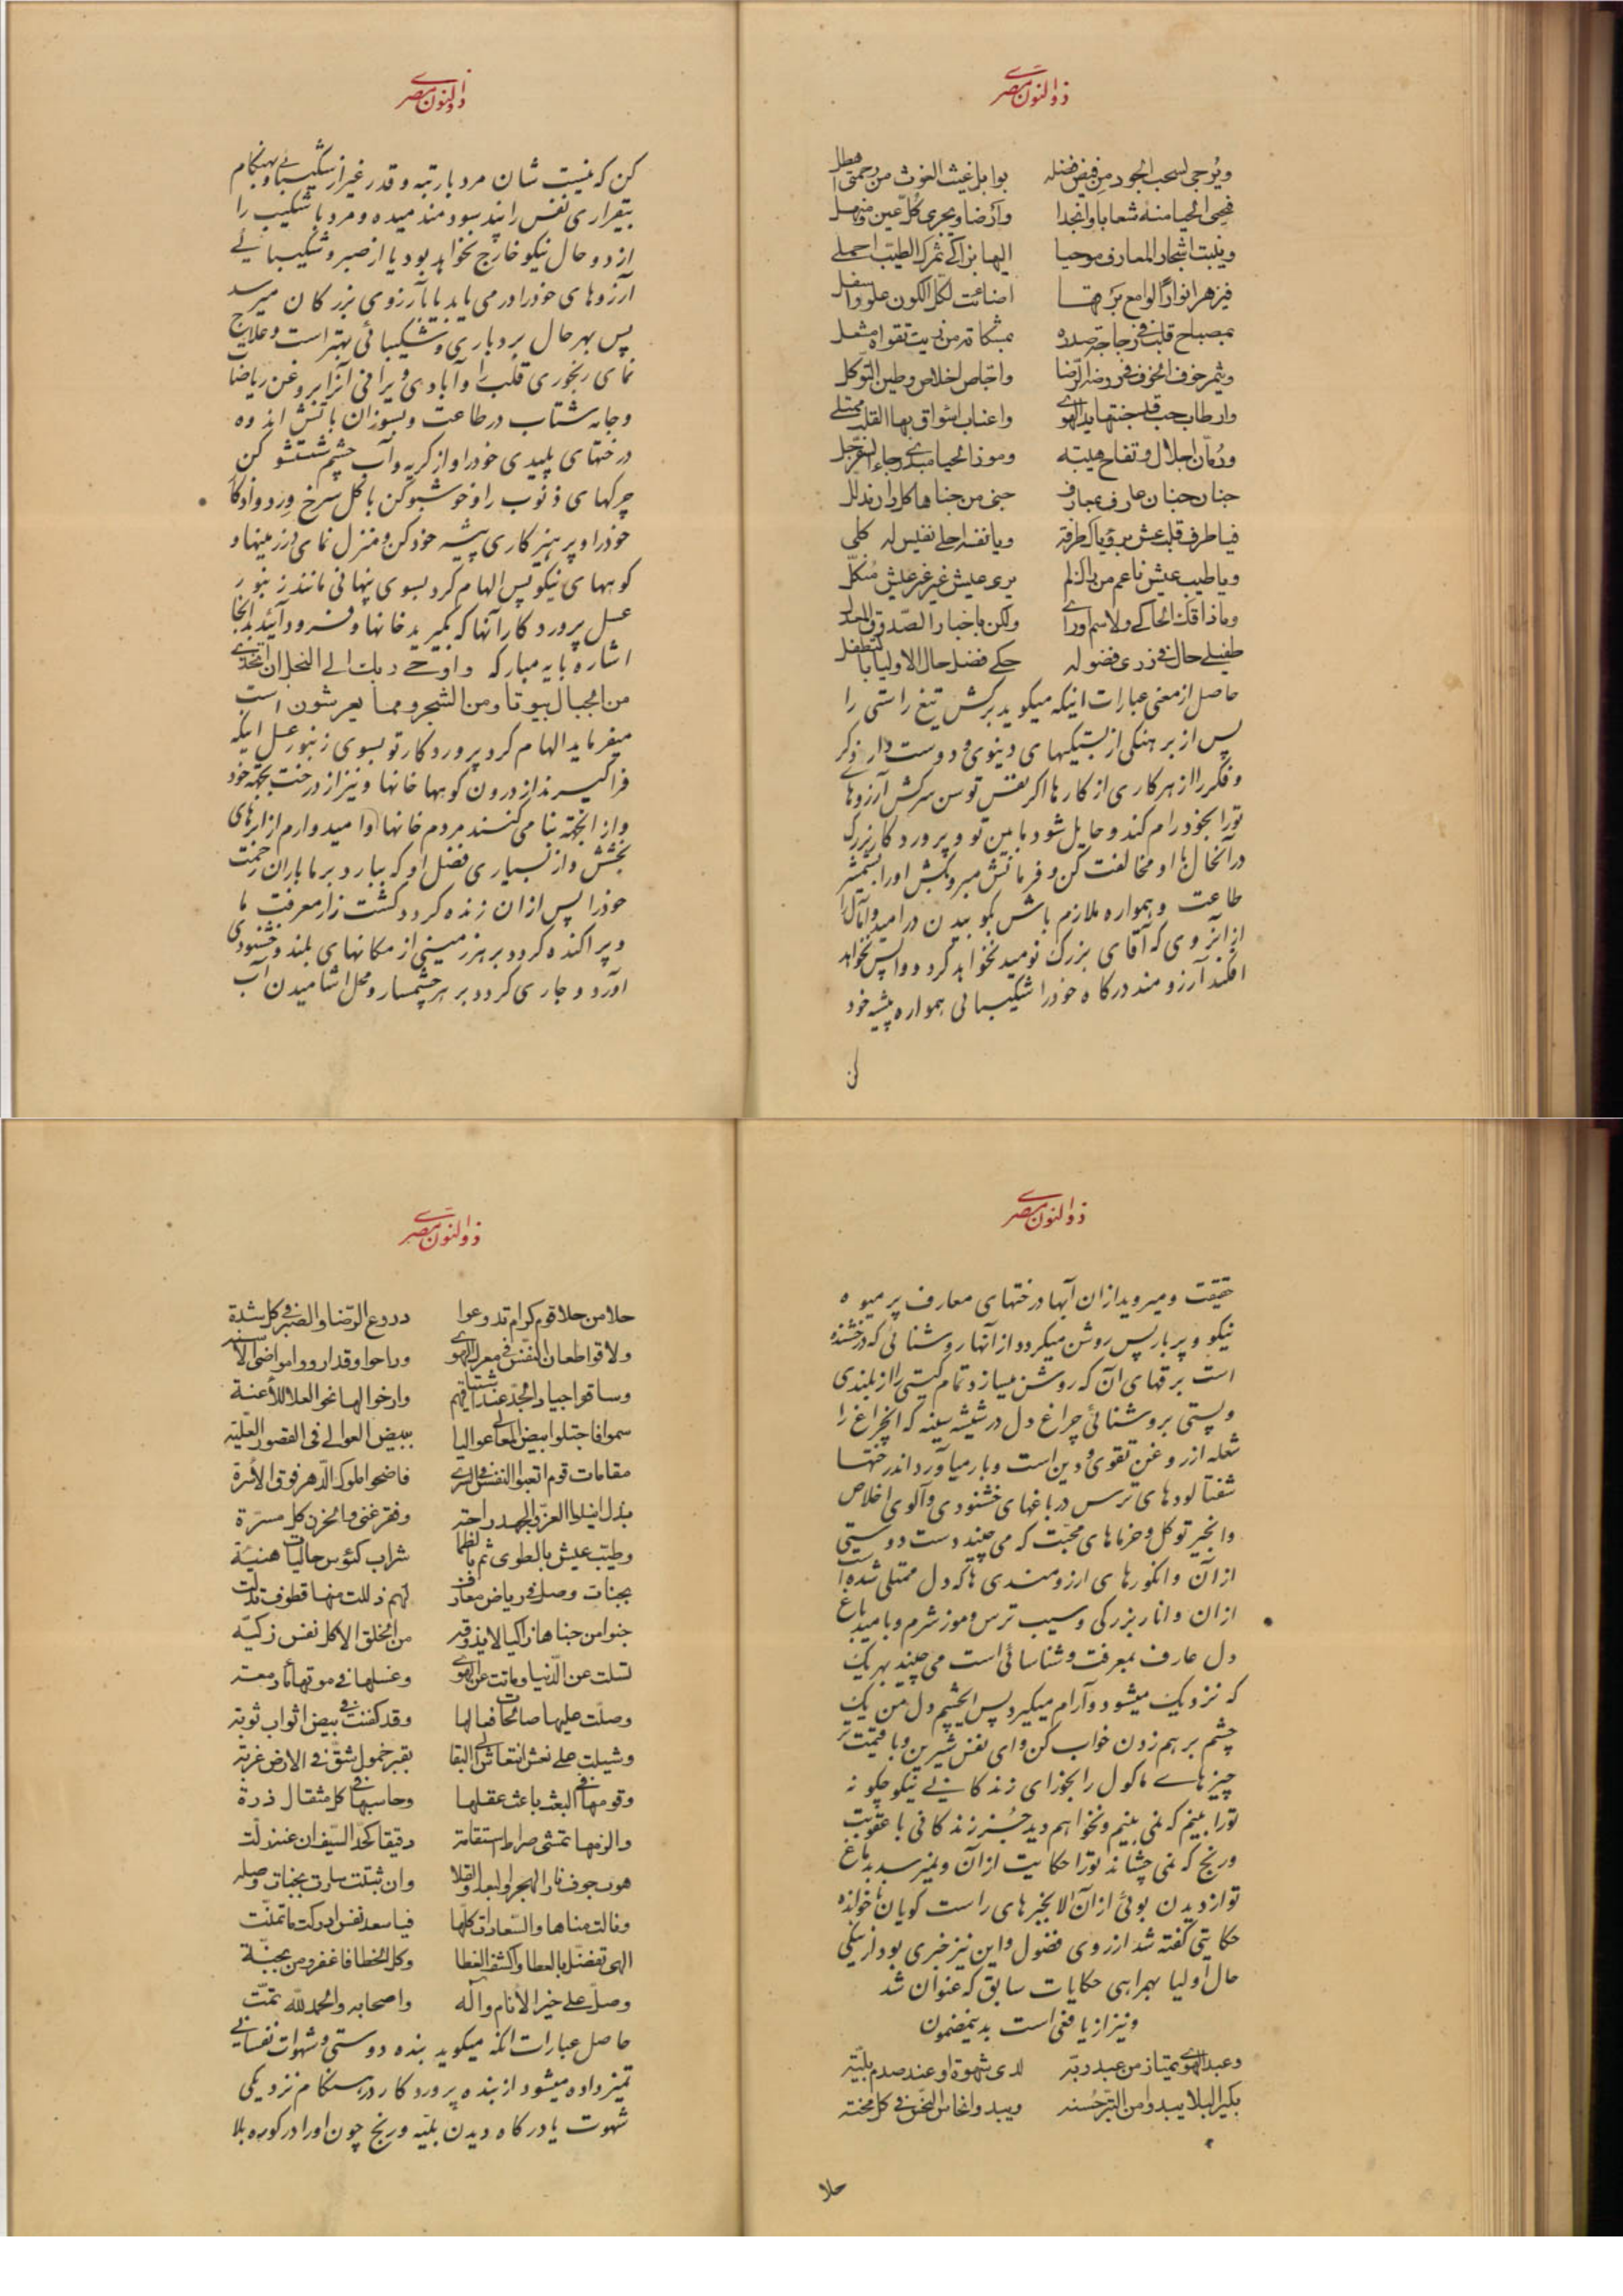 ذوالنون مصری
ویرجی لسحب الجود من فیض فضله بوابل غیث الغوث من رحمتی هطل
فیحیی الحیا منه شعابا وانجدا وارضا ویجری کل عین ومنهل
وینبت اشجار المعارف موحیا الیها بزاکی ثمرک الطیب احملی
فیزهر انوارا لوامع برقها اضائت لکل الکون علو واسفل
بمصباح قلب فی زجاجة صدره بمشکاة من زیت تقواه مشعل
ویثمر خوخ الخوف فی روضة الرضا واجاص اخلاص وطین التوکل
وارطاب حب قد جنتها ید الهوی واعناب اشواق بها القلب ممتلی
ورمان اجلال وتفاح هیبة وموز الحیا مبدی رجاء السفرجل
جنان جنان عارف بمعارف جنی من جناها کل دان مذلل
فیا طرف قلب عش برؤیاک طرفة ویا نفس احلی نفیس له کلی
ویا طیب عیش ناعم من یراک لم یری عیش غیر غیر عیش منکل
وماذاقک الحاکی ولا شم ورا ولکن باخبار الصدوق المعدل
طفیلی حال فی زری فضوله حکی فضل حال الاولیا بالتطفل
حاصل از معنی عبارات اینکه میکوید برکش تیغ راستی را
پس از برهنکی از بستکیهای دینوی و دوست دار ذکر
و فکر را از هر کاری از کارها اکر نفس توسن سرکش آرزوها
تورا بخود رام کند و حایل شود مابین تو و پروردکار بزرک
در آنحال با او مخالفت کن و فرمانش مبر و بکش اورا بشمشیر
طاعت و همواره ملازم باش بکوبیدن در امید و آمال را
از آنروی که آقای بزرک نومید نخواهد کرد و واپس نخواهد
افکند آرزومند درکاه خودرا شکیبائی همواره پیشه خود
کن
ذوالنون مصری
کن که نیست شان مرد با رتبه و قدر غیر از شکیبائی و بهنکام
بیقراری نفس را پند سودمند میده و مرد با شکیب را
از دو حال نیکو خارج نخواهد بود یا از صبر و شکیبائی
آرزوهای خودرا درمی یابد یا بآرزوی بزرکان میرسد
پس بهر حال بردباری و شکیبائی بهتر است و علاج
نمای رنجوری قلب را و آبادی ویرانی آنرا بروغن ریاضات
و جامه شتاب در طاعت و بسوزان باتش اندوه
درختهای پلیدی خودرا و از کریه و آب چشم شستشو کن
چرکهای ذنوب را و خوشبو کن باکل سرخ ورد و اذکار
خودرا و پرهیزکاری پیشه خود کن و منزل نمای در زمینها و
کوههای نیکو پس الهام کرد بسوی پنهانی مانند زنبور
عسل پروردکار آنها که بکیرید خانها و فرود آئید بدانجا
اشاره بایه مبارکه و اوحی ربک الی النحل ان اتخذی
من الجبال بیوتا ومن الشجر ومما یعرشون است
میفرماید الهام کرد پروردکار تو بسوی زنبور عسل اینکه
فراکیرند از درون کوهها خانها و نیز از درخت بجهة خود
و از آنچه بنا می کنند مردم خانها و امیدوارم از ابرهای
بخشش و از بسیاری فضل او که ببارد بر ما باران رحمت
خودرا پس از ان زنده کردد کشت زار معرفت ما
و پراکنده کردد بر هر زمینی از مکانهای بلند و خشنودی
آورد و جاری کردد بر هر چشمسار و محل اشامیدن آب
ذوالنون مصری
حقیقت و میروید از ان آبها درختهای معارف پر میوه
نیکو و پر بار پس روشن میکردد از آنها روشنائی که درخشنده
است برقهای آن که روشن میسازد تمام کیتی را از بلندی
و پستی بروشنائی چراغ دل در شیشه سینه که انچراغ را
شعله از روغن تقوی و دین است و بار میآورد اندر ختها
شفتالودهای ترس در باغهای خشنودی و آلوی اخلاص
و انجیر توکل و خرماهای محبت که می چیند دست دوستی
از آن و انکورهای ارزومندی ها که دل ممتلی شده است
از ان و انار بزرکی و سیب ترس و موز شرم و با امید باغ
دل عارف بمعرفت و شناسائی است می چیند بهر یک
که نزدیک میشود و آرام میکیرد پس ایچشم دل من یک
چشم بر هم زدن خواب کن و ای نفس شیرین و با قیمت تر
چیزهای ماکول را بخور ای زندکانی نیکو چکونه
تورا بینم که نمی بینم و نخواهم دید جز زندکانی با عقوبت
ورنج که نمی چشاند تورا حکایت از آن و نمیرسد بدماغ
تو از دیدن بوئی از آن الا بخبرهای راست کویان ناخوانده
حکایتی کفته شد از روی فضول و این نیز خبری بود از نیکی
حال اولیا بهمراهی حکایات سابق که عنوان شد
و نیز از یافعی است بدینمضمون
وعبد الهوی یمتاز من عبد ربه لدی شهوة او عند صدم بلیة
بکیر البلا یبدو من التبر حسنه ویبدو انحاس النحس فی کل محنة
حلا
ذوالنون مصری
حلا من حلا قوم کرام تدرعوا دروع الرضا والصبر فی کل شدة
ولاقوا طعان النفس فی معرک الهوی وراحوا وقد ارووا مواضی الاسنة
وساقوا جیاد الجد عند اشتباقهم وارخوا لها نحو العلا للاعنة
سموا فاجتلوا بیض المعالی عوالیا ببیض العوالی فی القصور العلیة
مقامات قوم اتعبوا النفس فی السری فاضحوا ملوک الدهر فوق الاسرة
بذل انیلوا العز والجهد راحة وفقر غنی والحزن کل مسرة
وطیب عیش بالطوی ثم بالظما شراب کئوس حالیات هنیة
بجنات وصل فی ریاض معارف لهم ذللت منها قطوف تدلت
جنوا من جناها زاکیا لا یذوقه من الخلق الا کل نفس زکیة
تسلت عن الدنیا وماتت عن الهوی وغسلها فی موتها ماء دمعة
وصلت علیها صالحات فعالها وقد کفنت فی بیض اثواب توبة
وشیلت علی نعش انتعاش الی البقا بقبر خمول شق فی الارض غربة
وقومها فی البعث باعث عقلها وحاسبها فی کل مثقال ذرة
والزمها تمشی صراط استقامة دقیقا کحد السیف ان عنه زلت
هوت جوف نار الهجر والبعد والقلا وان ثبتت سارت بجنات وصله
ونالت مناها والسعادات کلها فیا سعد نفس ادرکت ما تمنت
الهی تفضل بالعطا واکشف الغطا وکل الخطا فاغفر ومن بجنة
وصل علی خیر الانام وآله واصحابه والحمد لله تمت
حاصل عبارات انکه میکوید بنده دوستی و شهوات نفسانی
تمیز داده میشود از بنده پروردکار در هنکام نزدیکی
شهوت یا درکاه دیدن بلیه و رنج چون اورا در کوره بلا